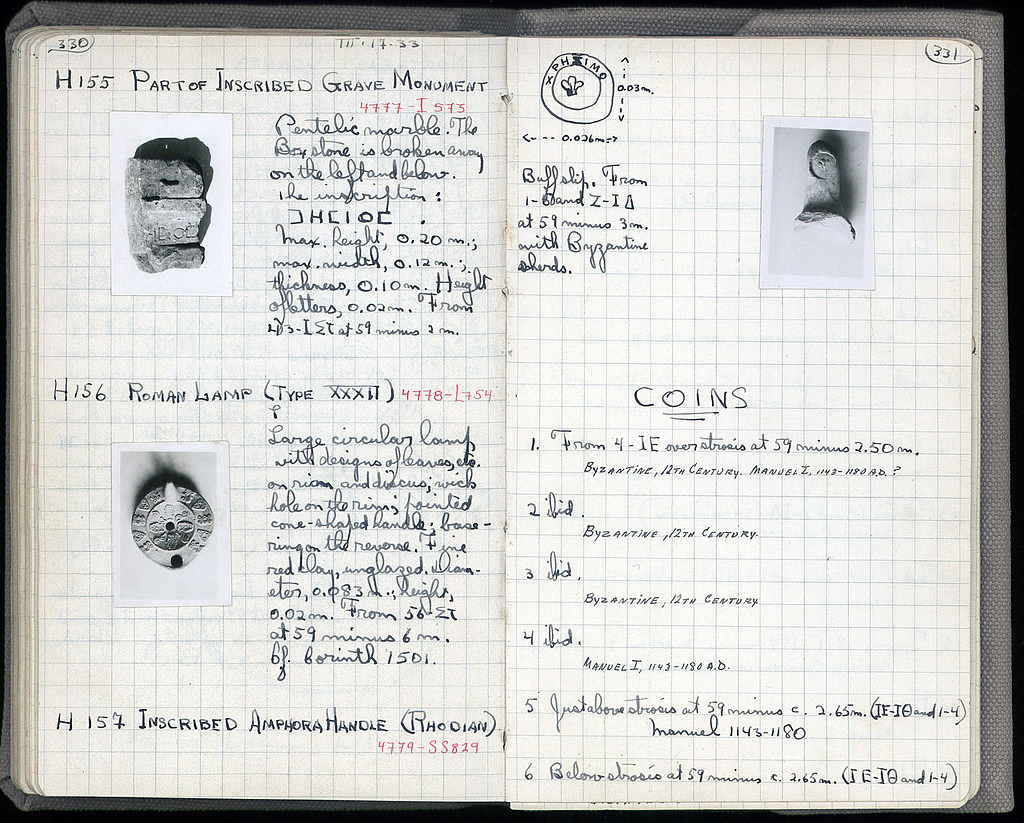 330
III·17·33
H155 PART OF INSCRIBED GRAVE MONUMENT
4777-I 573
Pentelic marble. The
stone is broken away
on the left and below.
The inscription:
max. height, 0.20 m.;
max. width, 0.12 m.;
thickness, 0.10 m. Height
of letters, 0.02 m. From
at 59 minus 2 m.
H156 ROMAN LAMP (TYPE XXXII) 4778-L754
?
Large circular lamp,
with designs of leaves, etc.
on rim and discus; wick
hole on the rim; pointed
cone-shaped handle; base-
ring on the reverse. Fine
red clay, unglazed. Diam-
eter, 0.083 m.; height,
0.02 m. From 56-ΣΤ
at 59 minus 6 m.
Cf. Corinth 1501.
H 157 INSCRIBED AMPHORA HANDLE (RHODIAN)
4779-SS829
331
ΧΡΗΣΙΜΟ
0.03m.
<--- 0.026m->
Buff slip. From
and Z-ΙΔ
at 59 minus 3m.
with Byzantine
sherds.
COINS
1. From 4-ΙΕ over strosis at 59 minus 2.50 m.
BYZANTINE, 12TH CENTURY. MANUEL I, 1143-1180 A.D. ?
2 ibid.
BYZANTINE, 12TH CENTURY.
3 ibid.
BYZANTINE, 12TH CENTURY
4 ibid.
MANUEL I, 1143-1180 A.D.
5 Just above strosis at 59 minus c. 2.65m. (ΙΕ-ΙΘ and 1-4)
Manuel 1143-1180
6 Below strosis at 59 minus c. 2.65m. (ΙΕ-ΙΘ and 1-4)